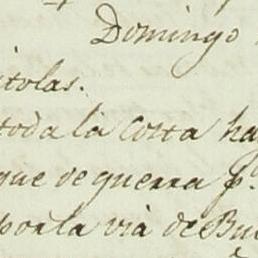 Domingo
itolas.
toda la Costa ha
que de guerra p.
por la via de Bu